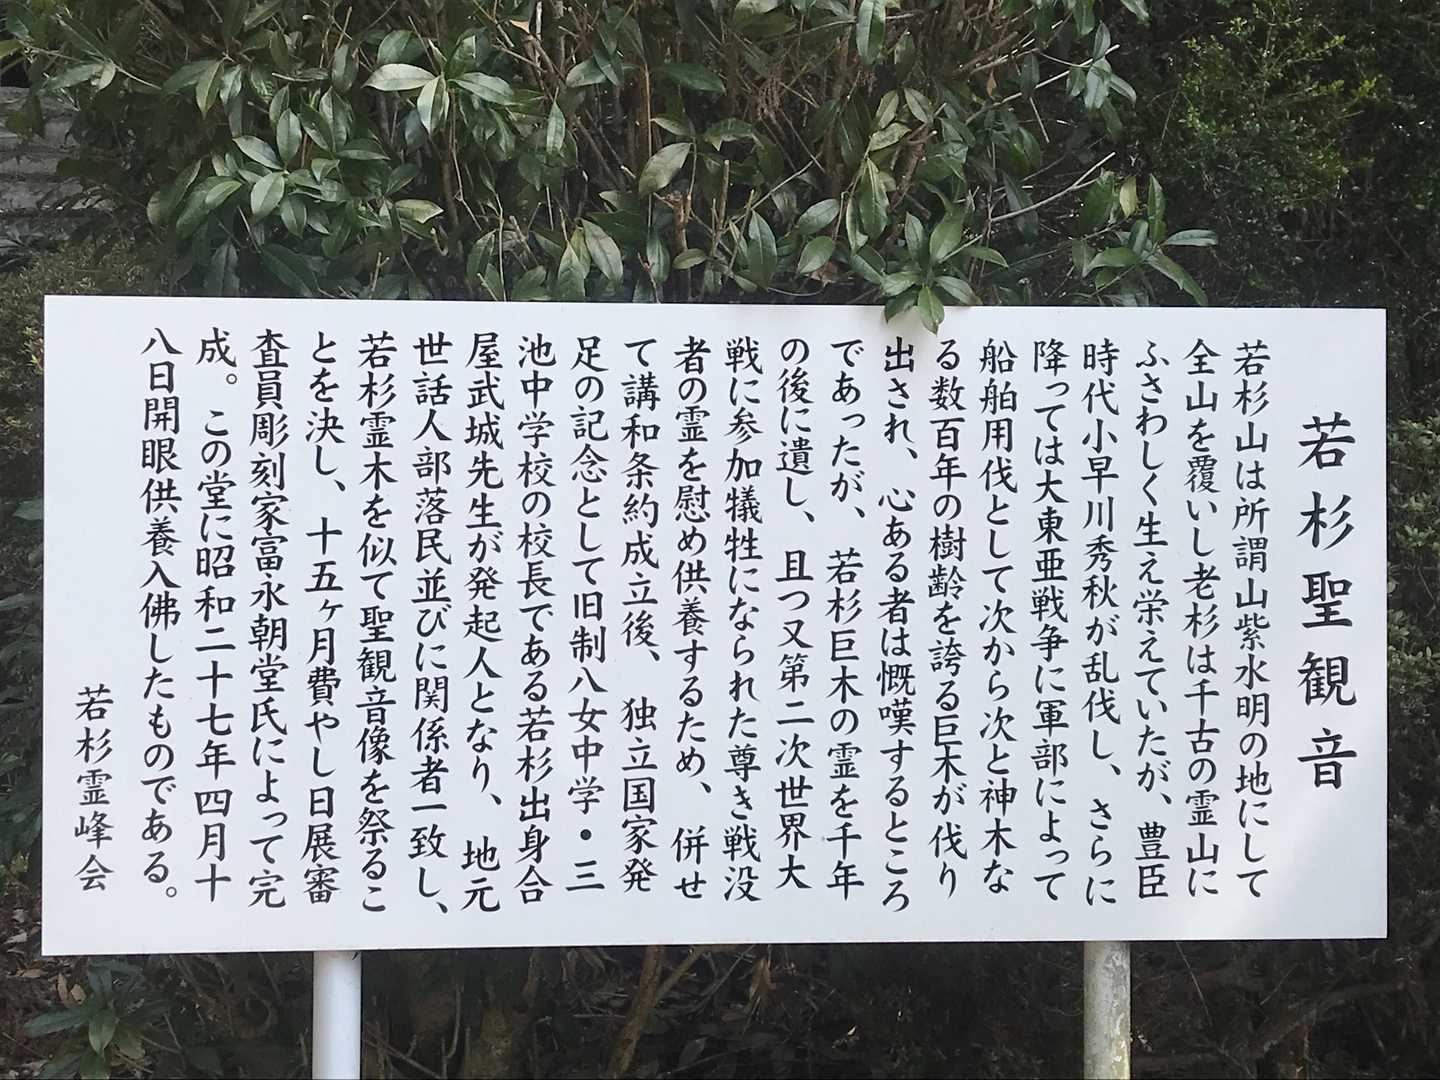 若杉聖観音
若杉山は所謂山紫水明の地にして
全山を覆いし老杉は千古の霊山に
ふさわしく生え栄えていたが、豊臣
時代小早川秀秋が乱伐し、さらに
降っては大東亜戦争に軍部によって
船舶用伐として次から次と神木な
る数百年の樹齢を誇る巨木が伐り
出され、心ある者は慨嘆するところ
であったが、若杉巨木の霊を千年
の後に遺し、且つ又第二次世界大
戦に参加犠牲になられた尊き戦没
者の霊を慰め供養するため、併せ
て講和条約成立後、独立国家発
足の記念として旧制八女中学・三
池中学校の校長である若杉出身合
屋武城先生が発起人となり、地元
世話人部落民並びに関係者一致し、
若杉霊木を似て聖観音像を祭るこ
とを決し、十五ヶ月費やし日展審
査員彫刻家富永朝堂氏によって完
成。この堂に昭和二十七年四月十
八日開眼供養入佛したものである。
若杉霊峰会